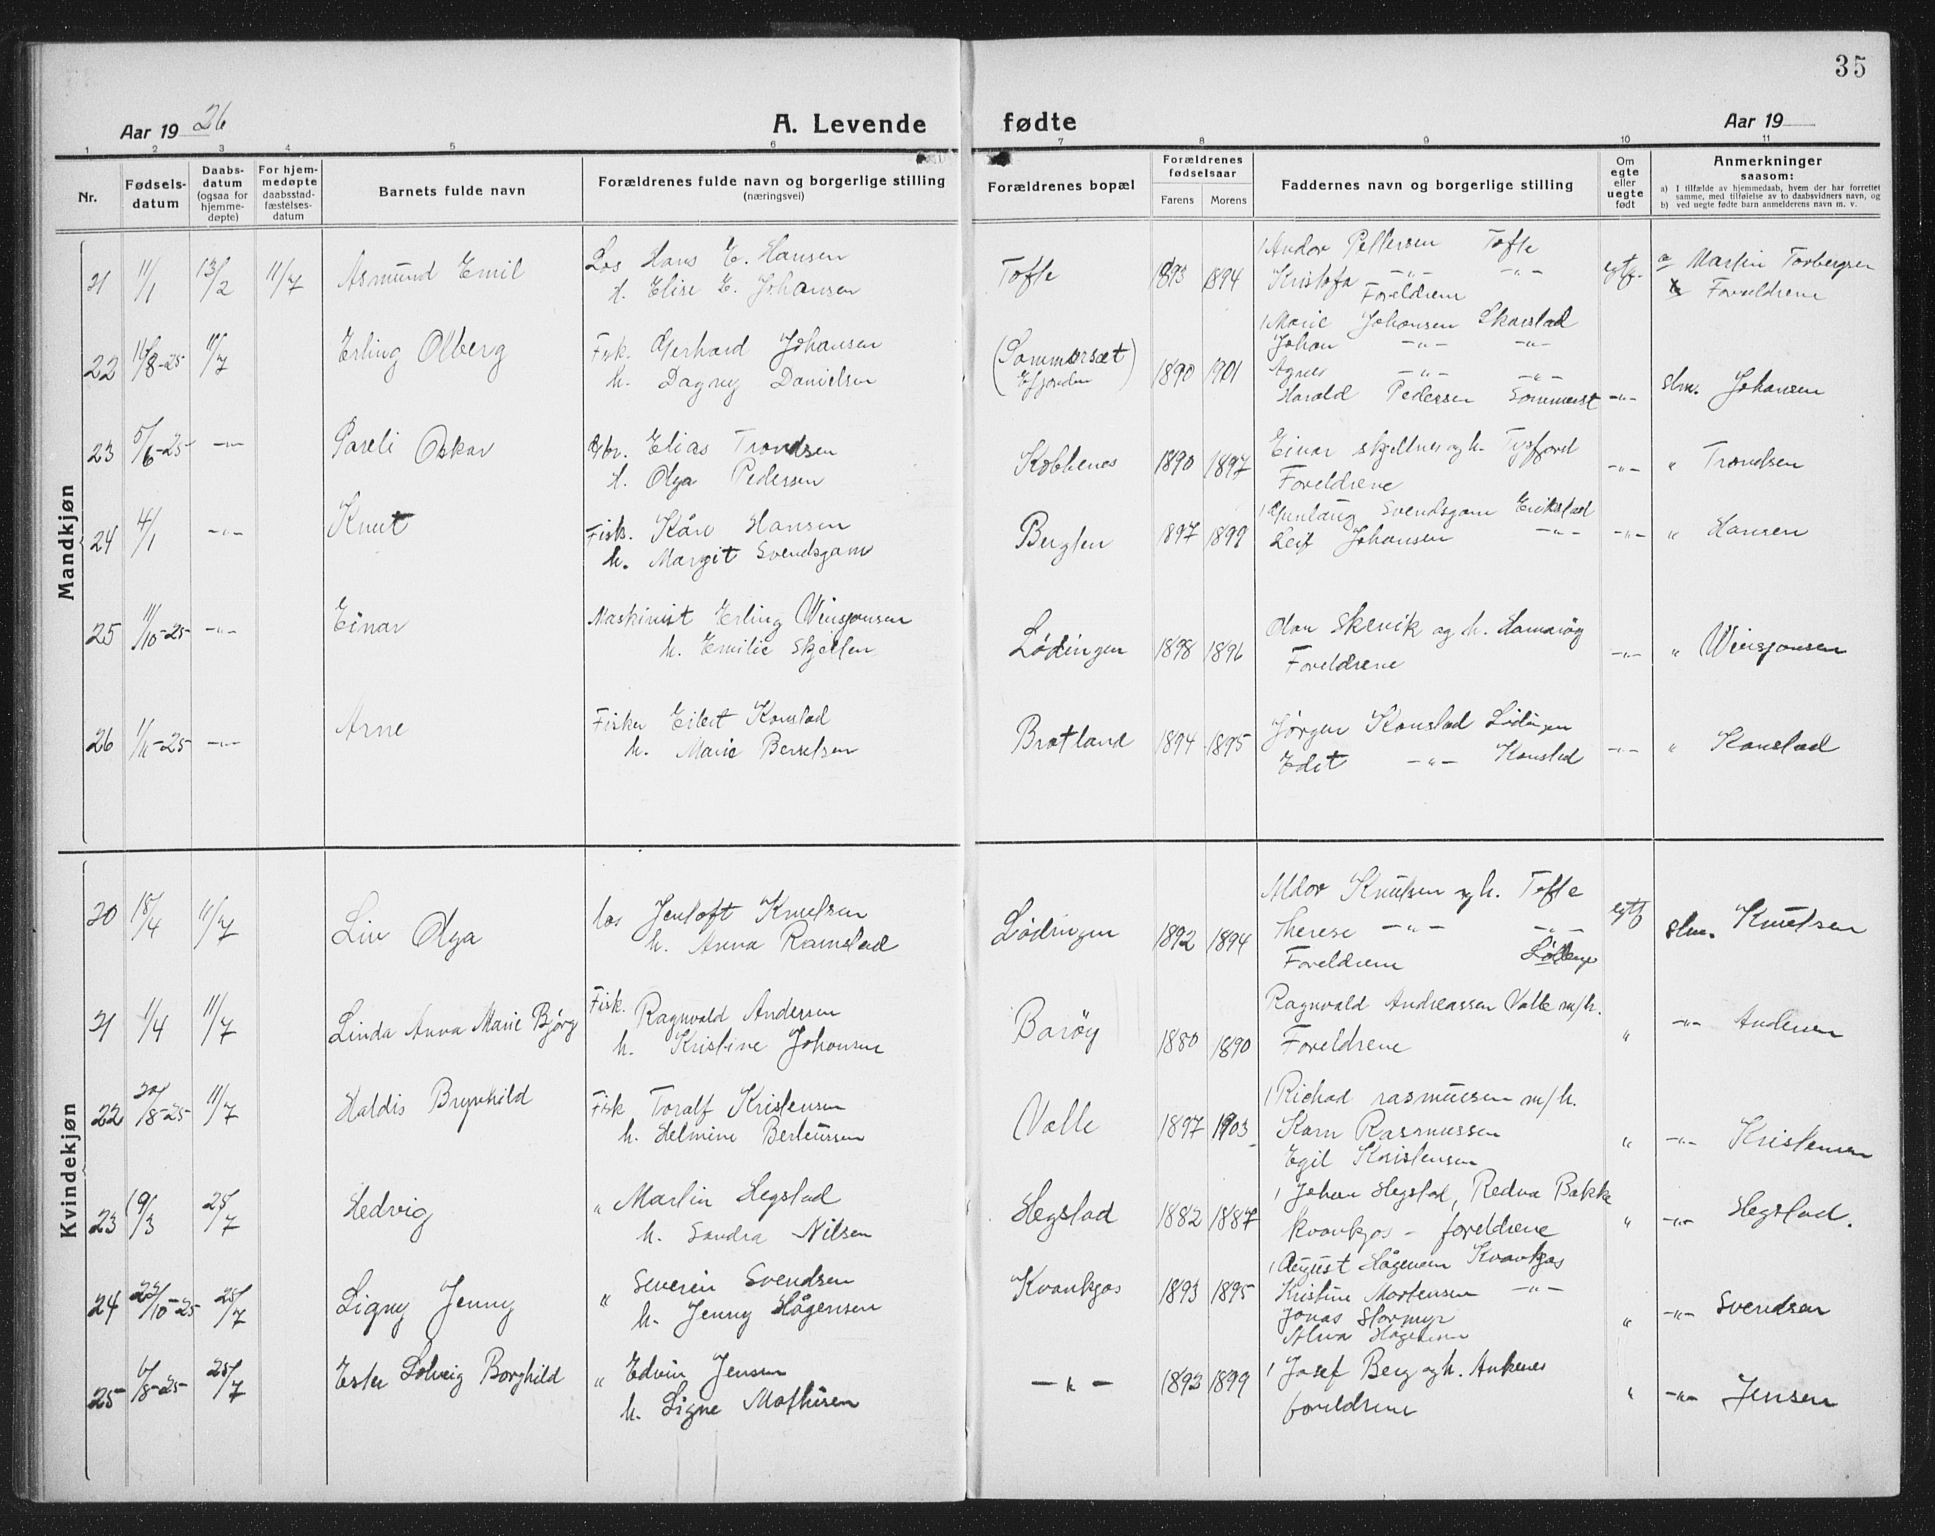 35
Aar 19 26
A. Levende fødte
Aar 19
1 2 3 4 5 6 7 8 9 10 11
Nr.
Fødsels-
datum
Daabs-
datum
(ogsaa for
hjemme-
døpte)
For hjem-
medøpte
daabsstad-
fæstelses-
datum
Barnets fulde navn
Forældrenes fulde navn og borgerlige stilling
(næringsvei)
Forældrenes bopæl
Forældrenes
fødselsaar
Farens Morens
Faddernes navn og borgerlige stilling
Om
egte
eller
uegte
født
Anmerkninger
saasom:
a) I tilfælde av hjemmedaab, hvem der har forrettet
samme, med tilføielse av to daabsvidners navn, og
b) ved uegte fødte barn anmelderens navn m. v.
Mandkjøn
21 11/1 13/2 11/7 Asmund Emil
Los Hans E. Hansen
h. Elise E. Johansen
Tofte 1893 1894
Andor Pettersen Tofte
Kristofa -"- -"-
Foreldrene
egtf.
a Martin Torbergsen
b Foreldrene
22 16/8-25 11/7 Erling Olberg
Fisk. Gerhard Johansen
h. Dagny Danielsen
(Sommersæt
Efjorden) 1890 1901
Marie Johansen Skarstad
Johan -"- -"-
Agnes -"- -"-
Harald Pedersen Sommerst
-"- slm. Johansen
23 5/6-25 -"- Pareli Oskar
Gbr. Elias Trondsen
h. Olga Pedersen
Kobbenes 1890 1897
Einar Skjellnes og h. Tysfjord
Foreldrene
-"- " Trondsen
24 4/1 -"- Knut
Fisk. Kåre Hansen
h. Margit Svendsgam
Berglen 1897 1899
Gunlaug Svendsgam Erikstad
Leif Johansen -"-
-"- " Hansen
25 11/10-25 -"- Einar
Maskinist Erling Winsjansen
h. Emilie Skjellen
Lødingen 1898 1896
Olav Skevik og h. Hamarøy
Foreldrene
-"- " Winsjansen
26 1/11-25 -"- Arne
Fisker Eilert Konstad
h. Marie Bertelsen
Bratland 1894 1895
Jørgen Konstad Lødingen
Edit -"- Konstad
-"- " Konstad
Kvindekjøn
20 18/4 11/7 Liv Olga
los Jentoft Knutsen
h. Anna Ramstad
Lødingen 1892 1894
Aldor Knutsen og h. Tofte
Therese -"- -"-
Foreldrene Lødinge
egtf slm. Knutsen
21 1/4 11/7 Linda Anna Marie Bjørg
Fisk. Ragnvald Andersen
h. Kristine Johansen
Barøy 1880 1890
Ragnvald Andreassen Valle m/h.
Foreldrene
" -"- Andersen
22 20/8-25 11/7 Haldis Brynhild
Fisk Toralf Kristensen
h. Helmine Berteussen
Valle 1897 1903
Richard rasmussen m/h.
Karn Rasmussen
Egil Kristensen
" -"- Kristensen
23 19/3 25/7 Hedvig
" Martin Hegstad
h. Sandra Nilsen
Hegstad 1882 1887
Johan Hegstad, Redva Bakke
Kvankjos - foreldrene
" -"- Hegstad.
24 22/10-25 25/7 Ligny Jenny
" Severin Svendsen
h. Jenny Hågensen
Kvankjos 1893 1895
August Hågensen Kvankjos
Kristine Mortensen -"-
Jonas Stormyr
Alva Hågensen
" -"- Svendsen
25 6/8-25 25/7 Ester Solveig Borghild
" Edvin Jensen
h. Signe Mathisen
-"- 1892 1899
Josef Berg og h. Ankenes
foreldrene
" -"- Jensen